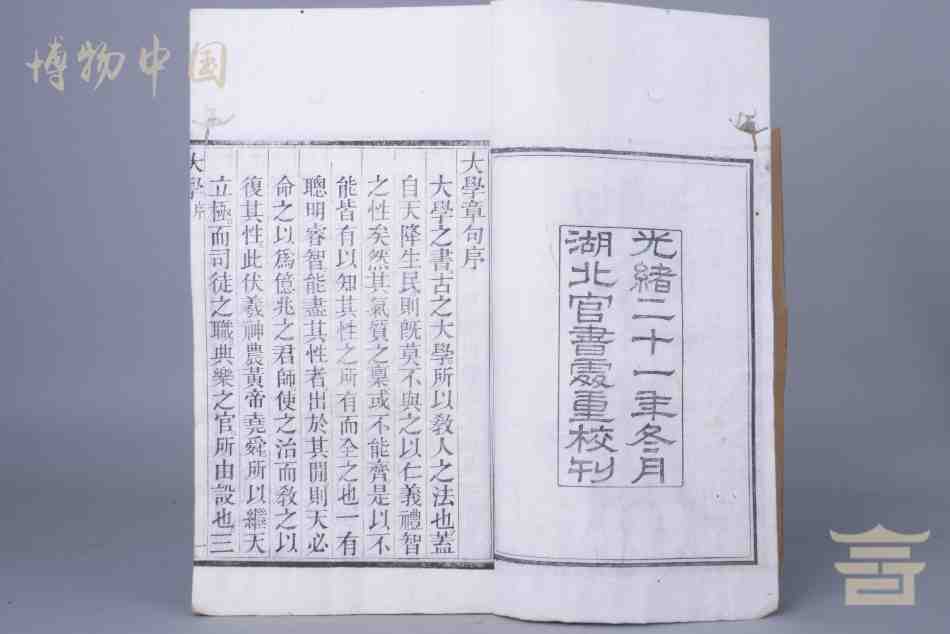 博物中国
光緒二十一年冬月
湖北官書處重校刊
大學章句序
大學之書古之大學所以教人之法也蓋
自天降生民則既莫不與之以仁義禮智
之性矣然其氣質之稟或不能齊是以不
能皆有以知其性之所有而全之也一有
聰明睿智能盡其性者出於其閒則天必
命之以爲億兆之君師使之治而教之以
復其性此伏羲神農黃帝堯舜所以繼天
立極而司徒之職典樂之官所由設也三
大學序
一